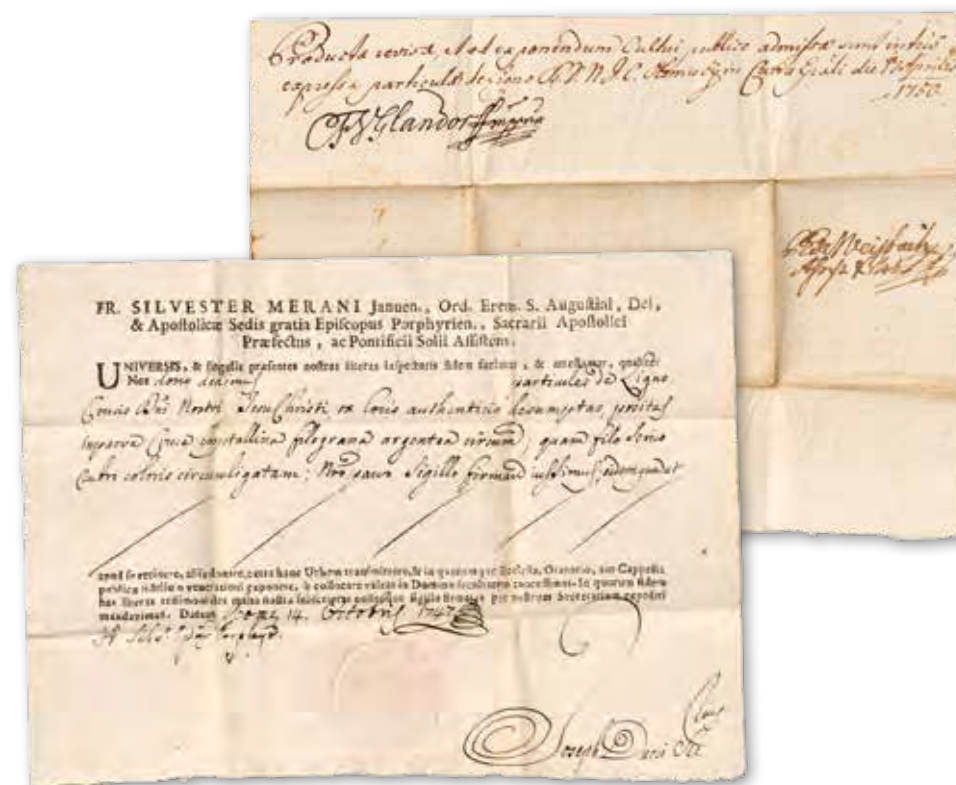 Producta revisa, et ad exponendum Cultui publico admissa sunt intus
expressa particula de Ligno D. N. J. C. in Curia die Aprilis
1750
FR. SILVESTER MERANI Januen., Ord. Erem. S. Auguſtini, Dei,
& Apoſtolicæ Sedis gratia Epiſcopus Porphyrien., Sacrarii Apoſtolici
Præfectus, ac Pontificii Solii Aſſiſtens.
UNIVERSIS, & ſingulis præſentes noſtras literas inſpecturis fidem facimus, & atteſtamur, qualiter
Nos dono dedimus particules de Ligno
Crucis Dni Nostri Jesu Christi ex locis authenticis desumptas, positas
in parva Cruce crystallina filograna argentea circum, quam filo serico
rubri coloris circumligatam, Nro parvo Sigillo firmari jussimus, eademque ut
apud ſe retinere, alijs donare, extra hanc Urbem tranſmittere, & in quacumque Eccleſia, Oratorio, aut Cappella
publicæ fidelium venerationi exponere, & collocare valeat in Domino facultatem conceſſimus. In quorum fidem
has literas teſtimoniales manu noſtra ſubſcriptas noſtroque ſigillo firmatas per noſtrum Secretarium expediri
mandavimus. Datum Romæ 14. Octobris 1747
Joseph